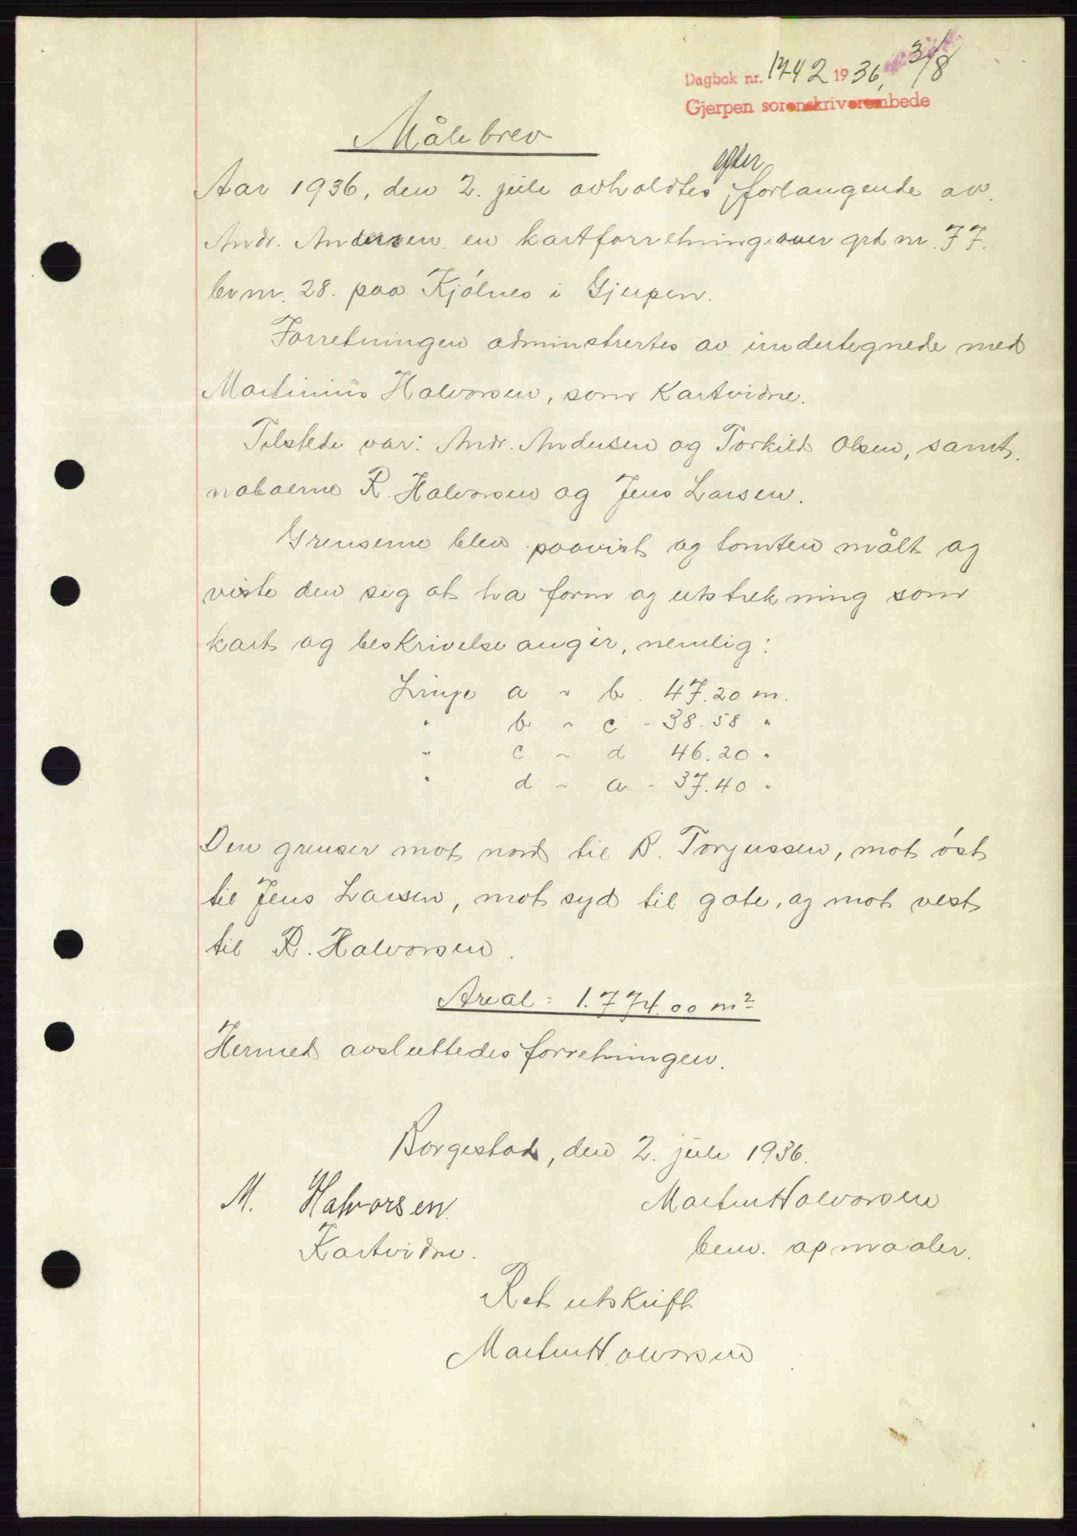 Dagbok nr. 1742 1936, 3/8
Gjerpen sorenskriverembede
Målebrev
efter
Aar 1936, den 2. juli avholdtes forlangende av
Andr. Andersen en kartforretning over grd nr. 77.
br nr. 28. paa Kjölnes i Gjerpen.
Forretningen adminstrertes av undertegnede med
Martinius Halvorsen, som Kartvidne.
Tilstede var: Andr. Andersen og Torkild Olsen, samt
naboerne R. Halvorsen og Jens Larsen.
Grenserne blev paavist og tomten målt og
viste den sig at ha form og utstrekning som
kart og beskrivelse angir, nemlig:
Linje a - b. 47.20 m.
" b - c - 38.58 "
" c - d 46.20 "
" d - a - 37.40 "
Den grenser mot nord til B. Torjussen, mot öst
til Jens Larsen, mot syd til gate, og mot vest
til R. Halvorsen.
Areal = 1.774.00 m²
Hermed avsluttedes forretningen.
Borgestad, den 2. juli 1936.
M. Halvorsen Martin Halvorsen
Kartvidne. bem. opmaaler.
Ret utskrift
Martin Halvorsen